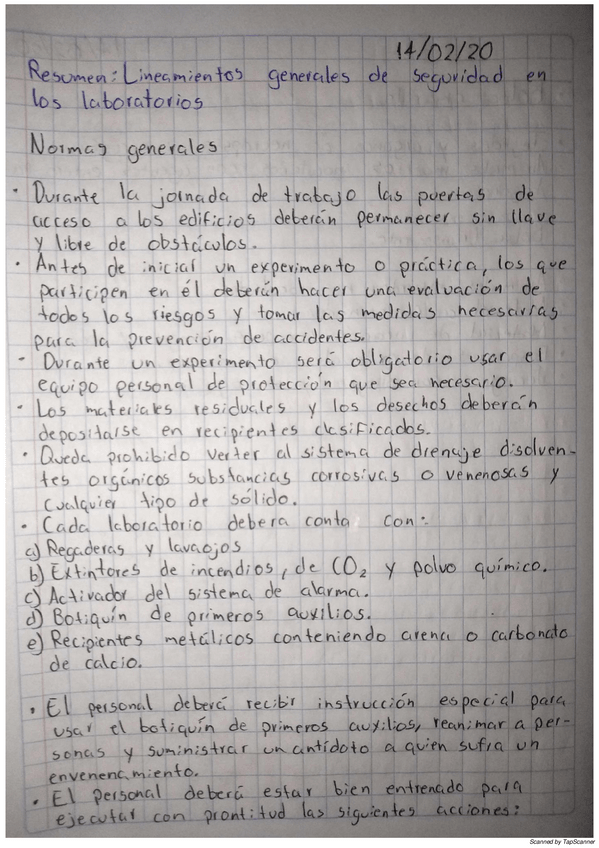 14/02/20
Resumen: Lineamientos generales de seguridad en
los laboratorios
Normas generales
· Durante la jornada de trabajo las puertas de
acceso a los edificios deberán permanecer sin llave
y libre de obstáculos.
· Antes de iniciar un experimento o práctica, los que
participen en él deberán hacer una evaluación de
todos los riesgos y tomar las medidas necesarias
para la prevención de accidentes.
· Durante un experimento será obligatorio usar el
equipo personal de protección que sea necesario.
· Los materiales residuales y los desechos deberán
depositarse en recipientes clasificados.
· Queda prohibido verter al sistema de drenaje disolven-
tes orgánicos substancias corrosivas o venenosas y
cualquier tipo de sólido.
· Cada laboratorio debera conta con:
a) Regaderas y lavaojos
b) Extintores de incendios, de CO₂ y polvo químico.
c) Activador del sistema de alarma.
d) Botiquín de primeros auxilios.
e) Recipientes metálicos conteniendo arena o carbonato
de calcio.
· El personal deberá recibir instrucción especial para
usar el botiquín de primeros auxilios, reanimar a per-
sonas y suministrar un antídoto a quien sufra un
envenenamiento.
· El personal deberá estar bien entrenado para
ejecutar con prontitud las siguientes acciones:
Scanned by TapScanner